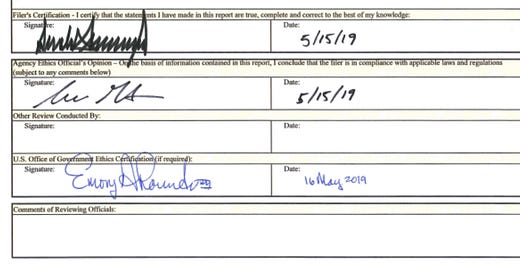 Filer's Certification - I certify that the statements I have made in this report are true, complete and correct to the best of my knowledge:
Signature: Date:
5/15/19
Agency Ethics Official's Opinion - On the basis of information contained in this report, I conclude that the filer is in compliance with applicable laws and regulations
(subject to any comments below)
Signature: Date:
5/15/19
Other Review Conducted By:
Signature: Date:
U.S. Office of Government Ethics Certification (if required):
Signature: Date:
Emory A Rounds III 16 May 2019
Comments of Reviewing Officials: